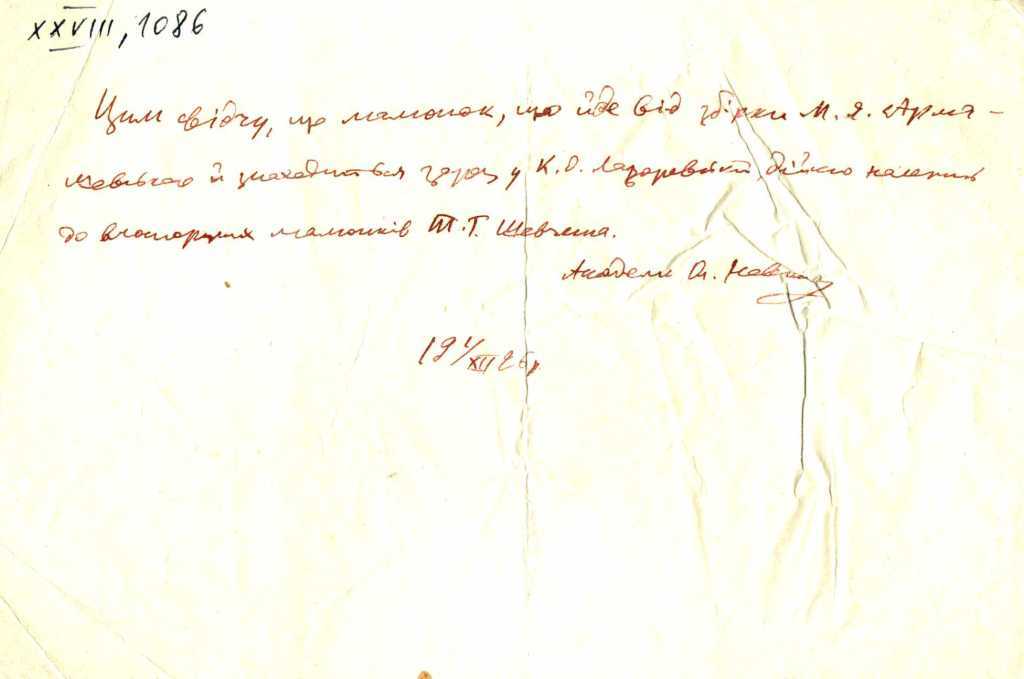 XXVIII, 1086
Цим свідчу, що малюнок, що йде від збірки М. Я. Арма-
шевського й знаходиться зараз у К. О. Лазаревської, дійсно належить
до малюнків Т. Г. Шевченка.
Академік Ол. Новицький
19 XII 26 р.